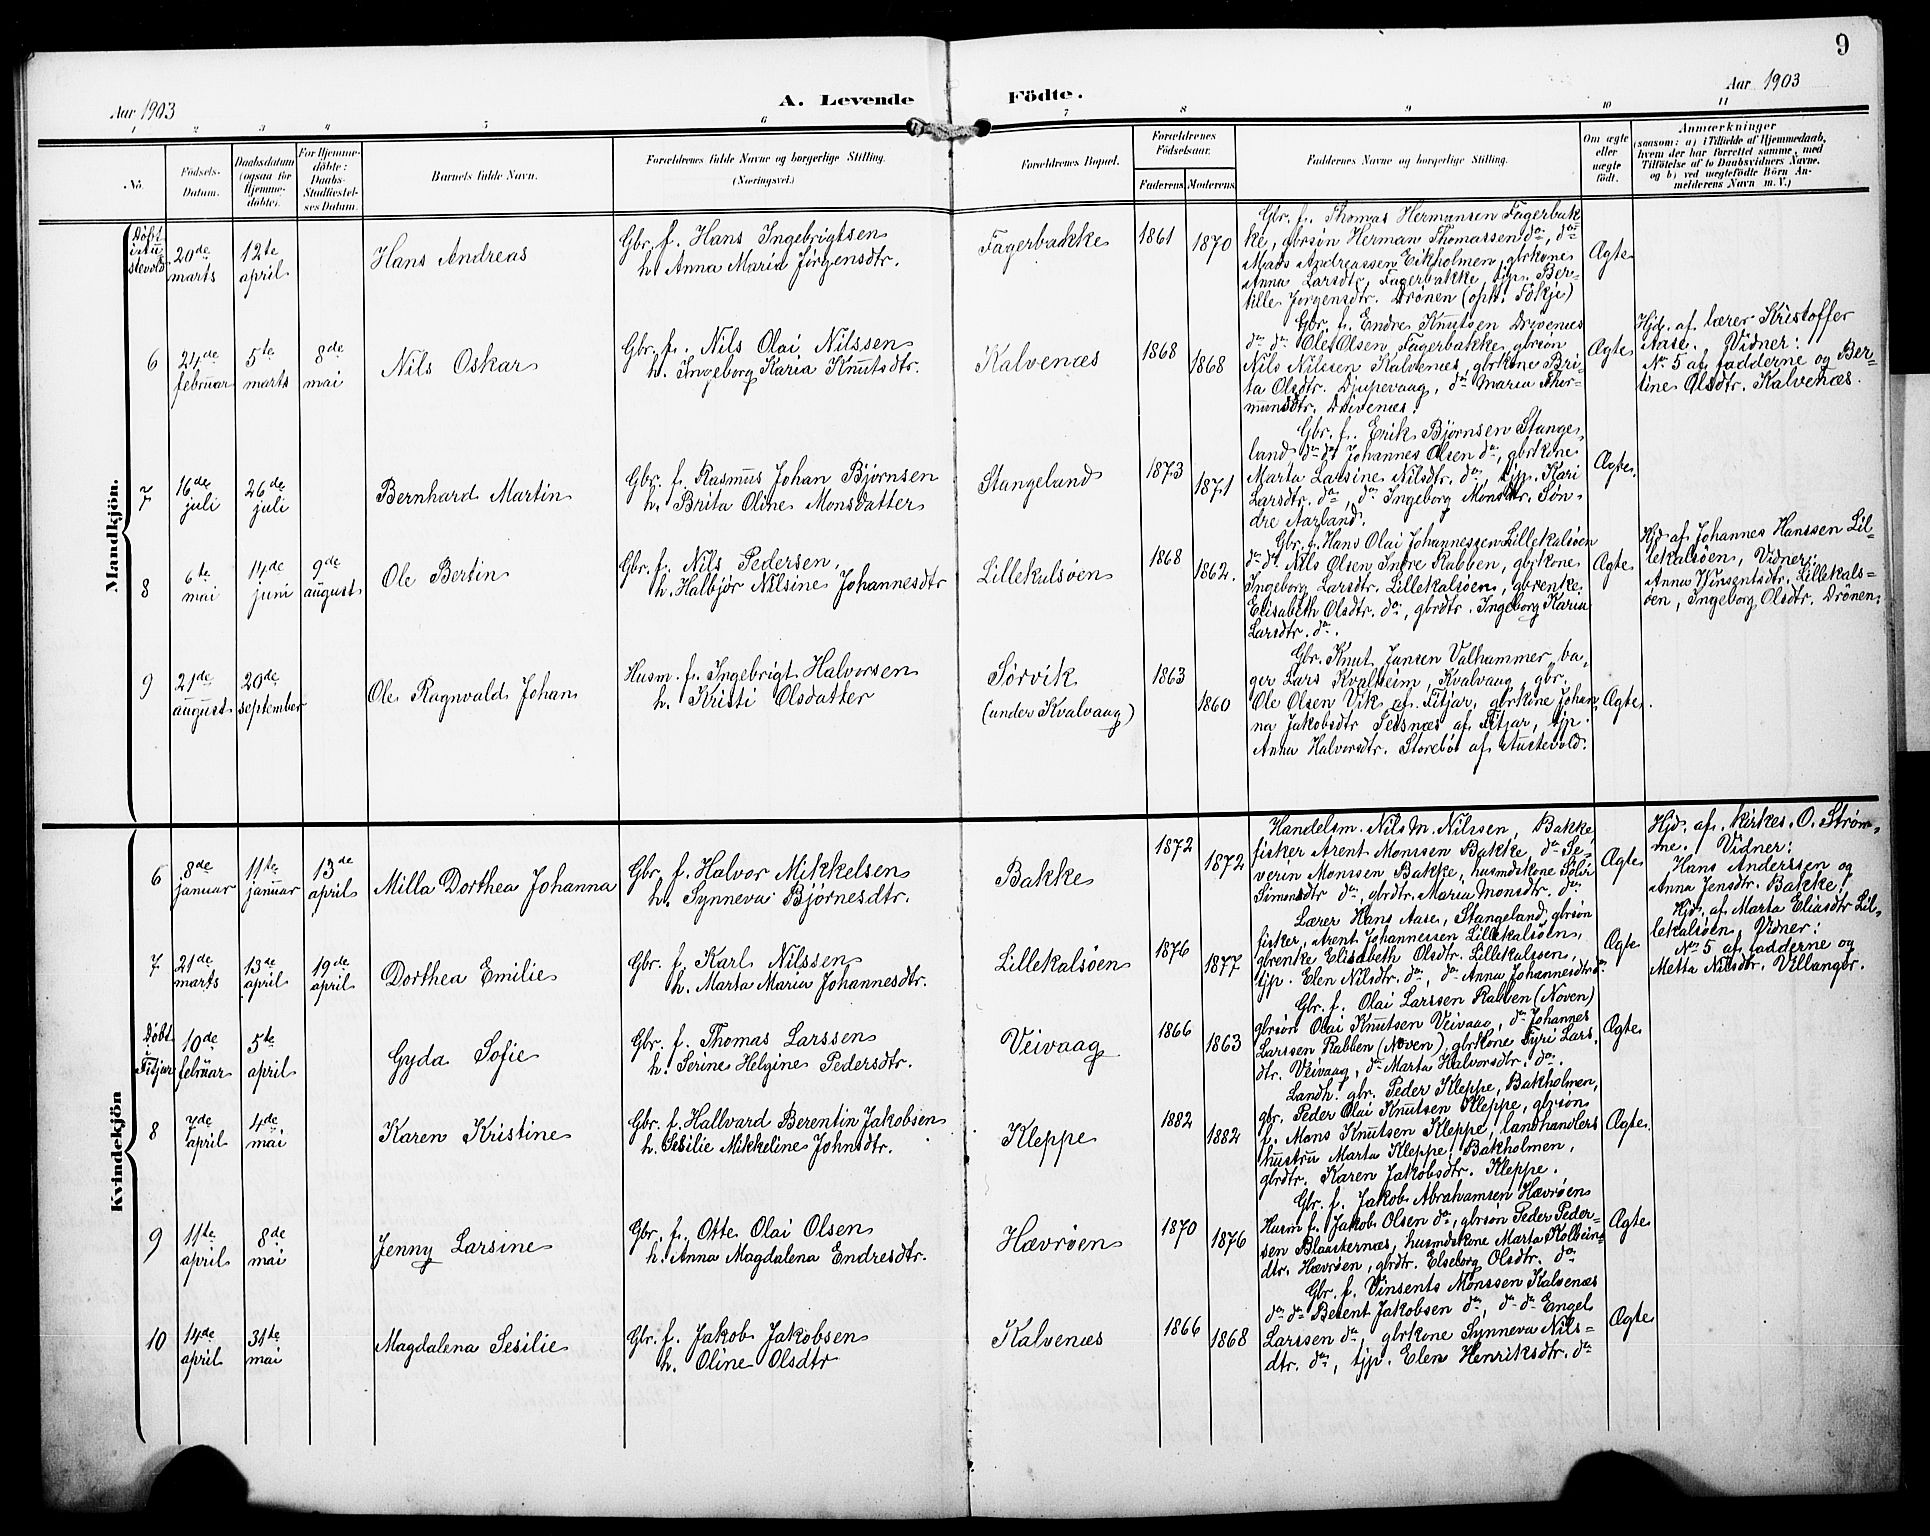 9
Aar 1903
A. Levende Födte.
Aar 1903
1 2 3 4 5 6 7 8 9 10 11
No.
Födsels-
Datum.
Daabsdatum
(ogsaa for
Hjemme-
döbte).
For Hjemme-
döbte:
Daabs-
Stadfæstel-
ses Datum.
Barnets fulde Navn.
Forældrenes fulde Navne og borgerlige Stilling.
(Næringsvei.)
Forældrenes Bopæl.
Forældrenes
Födselsaar.
Faderens Moderens
Faddernes Navne og borgerlige Stilling.
Om ægte
eller
uægte
født.
Anmærkninger
(saasom: a) i Tilfælde af Hjemmedaab,
hvem der har forrettet samme, med
Tilföielse af to Daabsvidners Navne,
og b) ved uægtefödte Börn An-
melderens Navn m. V.)
Mandkjön.
Døbt
i Au-
stevold
20de
marts
12te
april
Hans Andreas
Gbr. f. Hans Ingebrigtsen
h. Anna Maria Jørgensdtr.
Fagerbakke
1861
1870
Gbr. f. Thomas Hermansen Fagerbak-
ke, gbrsøn Herman Thomassen do, do
Mads Andreassen Eikholmen, gbrkone
Anna Larsdtr. Fagerbakke, tjp. Ber-
tille Jørgensdtr. Drønen (oph. Fökje)
Ægte
6
24de
februar
5te
marts
8de
mai
Nils Oskar
Gbr. f. Nils Olai Nilssen
h. Ingeborg Karia Knutsdtr.
Kalvenæs
1868
1868
Gbr. f. Endre Knutsen Drivenæs
do do Ole Olsen Fagerbakke, gbrsøn
Nils Nilssen Kalvenæs, gbrkone Bri-
ta Olsdtr. Djupevaag, do Maria Thor-
munsdtr. Drivenæs.
Ægte
Hjd. af lærer Kristoffer
Aase. Vidner:
No 5 af fadderne og Ber-
tine Olsdtr. Kalvenæs.
7
16de
juli
26de
juli
Bernhard Martin
Gbr. f. Rasmus Johan Bjørnsen
h. Brita Oline Monsdatter
Stangeland
1873
1871
Gbr. f. Erik Bjørnsen Stange-
land do do Johannes Olsen do, gbrkone
Marta Larsine Nilsdtr. do, tjp. Kari
Larsdtr. do, do Ingeborg Monsdtr. Søn-
dre Aarland.
Ægte.
8
6te
mai
14de
juni
9de
august
Ole Bertin
Gbr. f. Nils Pedersen,
h. Halbjør Nilsine Johannesdtr
Lillekalsøen
1868
1862.
Gbr. f. Hans Olai Johannessen Lillekalsøen
do do Nils Olsen Indre Rabben, gbrkone
Ingeborg Larsdtr. Lillekalsøen, gbrenke
Elisabeth Olsdtr. do, gbrdtr. Ingeborg Karia
Larsdtr. do.
Ægte
Hjd af Johannes Hanssen Lil-
lekalsøen, Vidner:
Anna Vinsentsdtr. Lillekals-
øen, Ingeborg Olsdtr. Drønen.
9
21de
august
20de
september
Ole Ragnvald Johan
Husm. f. Ingebrigt Halvorsen
h. Kristi Olsdatter
Sørvik
(under Kvalvaag)
1863
1860
Gbr. Knut Jansen Valhammer, ba-
ger Lars Kvalheim, Kvalvaag, gbr.
Ole Olsen Vik af Fitjar, gbrkone Johan-
na Jakobsdtr Teisnæs af Fitjar, tjp.
Anna Halvorsdtr. Storebø af Austevold.
Ægte.
Kvindekjön
6
8de
januar
11te
januar
13de
april
Milla Dorthea Johanna
Gbr. f. Halvor Mikkelsen
h. Synneva Bjørnesdtr.
Bakke
1872
1872
Handelsm. Nils M. Nilssen, Bakke,
fisker Arent Monssen Bakke, do Se-
verin Monssen Bakke, husmdskone Sölvi
Simonsdtr do, gbrdtr. Maria Monsdtr. do
Ægte
Hjd. af kirkes. O. Strøm-
me. Vidner:
Hans Anderssen og
Anna Jensdtr. Bakke.
7
21de
marts
13de
april
19de
april
Dorthea Emilie
Gbr. f. Karl Nilssen
h. Marta Maria Johannesdtr.
Lillekalsøen
1876
1877
Lærer Hans Aase, Stangeland, gbrsøn
fisker, Arent Johannessen Lillekalsøen,
gbrenke Elisabeth Olsdtr. Lillekalsøen,
tjp. Elen Nilsdtr. do, do Anna Johannesdtr do.
Ægte
Hjd. af Marta Eliasdtr Lil-
lekalsøen, Vidner:
No 5 af fadderne og
Metta Nilsdtr. Villanger.
Døbt
i
Fitjar
10de
februar
5te
april
Gyda Sofie
Gbr. f. Thomas Larssen
h. Serine Helgine Pedersdtr.
Veivaag
1866
1863
Gbr. f. Olai Larssen Rabben (Noven)
gbrsøn Olai Knutsen Veivaag, do Johannes
Larssen Rabben (Noven), gbrkone Fyri Lars-
dtr. Veivaag, do Marta Halvorsdtr. do.
Ægte
8
7de
april
4de
mai
Karen Kristine
Gbr. f. Hallvard Berentin Jakobsen
h. Sesilie Mikkeline Johnsdtr.
Kleppe
1882
1882
Landh. gbr. Peder Kleppe, Bakholmen,
gbr. Peder Olai Knutsen Kleppe, gbrsøn
f. Mons Knutsen Kleppe, landhandlers
hustru Marta Kleppe, Bakholmen,
gbrdtr. Karen Jakobsdtr. Kleppe.
Ægte.
9
11te
april
8de
mai
Jenny Larsine
Gbr. f. Otte Olai Olsen
h. Anna Magdalena Endresdtr.
Hævrøen
1870
1876
Gbr. f. Jakob Abrahamsen Hævrøen
Husm f. Jakob Olsen do, gbrsøn Peder Peder-
sen Blaasternæs, husmdskone Marta Kolbeins-
dtr. Hævrøen, gbrdtr. Elseborg Olsdtr. do
Ægte
10
14de
april
31te
mai
Magdalena Sesilie
Gbr. f. Jakob Jakobsen
h. Oline Olsdtr
Kalvenæs
1866
1868
Gbr. f. Vinsents Monssen Kalvenæs
do do Berent Jakobsen do, do do Engel
Larssen do, gbrkone Synneva Nils-
dtr. do, tjp. Elen Henriksdtr. do
Ægte